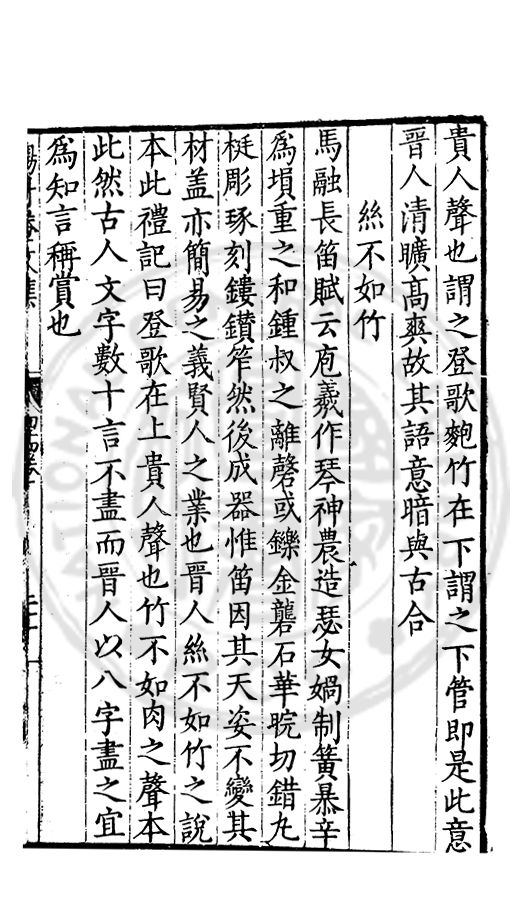 貴人聲也謂之登歌匏竹在下謂之下管即是此意
晉人清曠高爽故其語意暗與古合
絲不如竹
馬融長笛賦云庖羲作琴神農造瑟女媧制簧暴辛
為塤重之和鍾叔之離磬或鑠金礱石華睆切錯丸
梴彫琢刻鏤鑚笮然後成器惟笛因其天姿不變其
材盖亦簡易之義賢人之業也晉人絲不如竹之說
本此禮記曰登歌在上貴人聲也竹不如肉之聲本
此然古人文字數十言不盡而晉人以八字盡之宜
為知言稱賞也